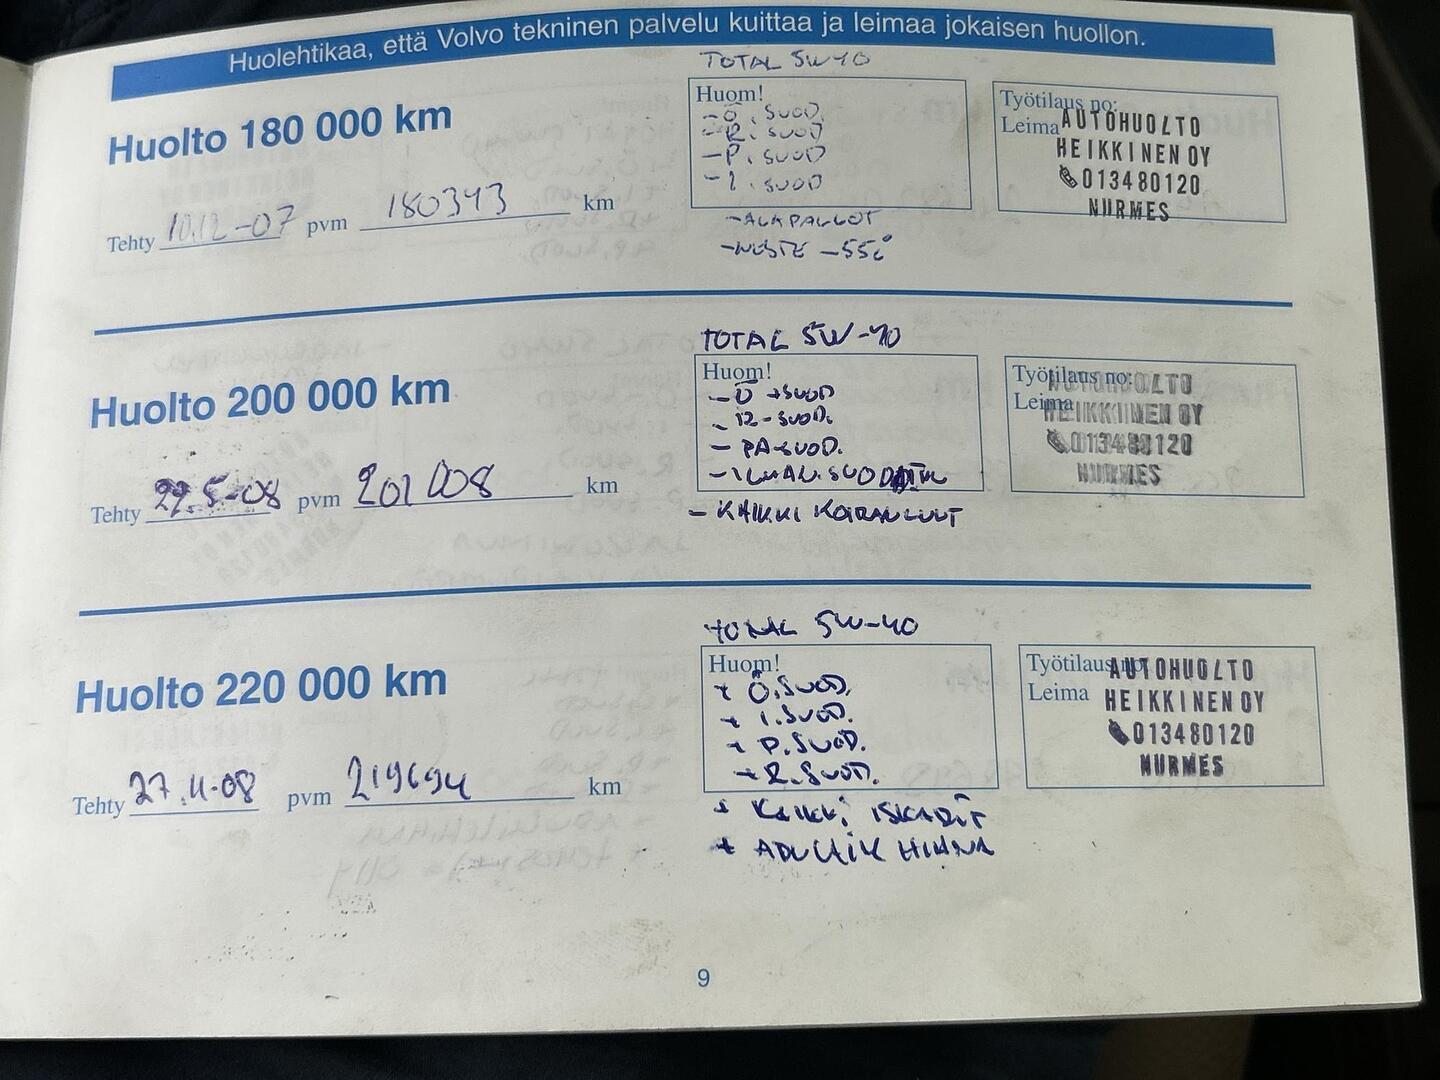 Huolehtikaa, että Volvo tekninen palvelu kuittaa ja leimaa jokaisen huollon.
TOTAL 5W40
Huolto 180 000 km
Huom!
- Ö. SUOD.
- R. SUOD
- P. SUOD
- I. SUOD
- ALAPALLOT
- NESTE -55°
Työtilaus no:
Leima
AUTOHUOLTO
HEIKKINEN OY
013480120
NURMES
Tehty 10.12-07 pvm 180343 km
TOTAL 5W-40
Huolto 200 000 km
Huom!
- Ö + SUOD
- I2-SUOD.
- PA-SUOD.
- KAIKKI KOIRANLUUT
Työtilaus no:
Leima
AUTOHUOLTO
HEIKKINEN OY
013480120
NURMES
Tehty 22.5-08 pvm 201 008 km
TOTAL 5W-40
Huolto 220 000 km
Huom!
+ Ö.SUOD.
+ I.SUOD.
+ P.SUOD.
+ R.SUOD.
+ KAIKKI ISKARIT
+ HIHNA
Työtilaus no:
Leima
AUTOHUOLTO
HEIKKINEN OY
013480120
NURMES
Tehty 27.11-08 pvm 219694 km
9